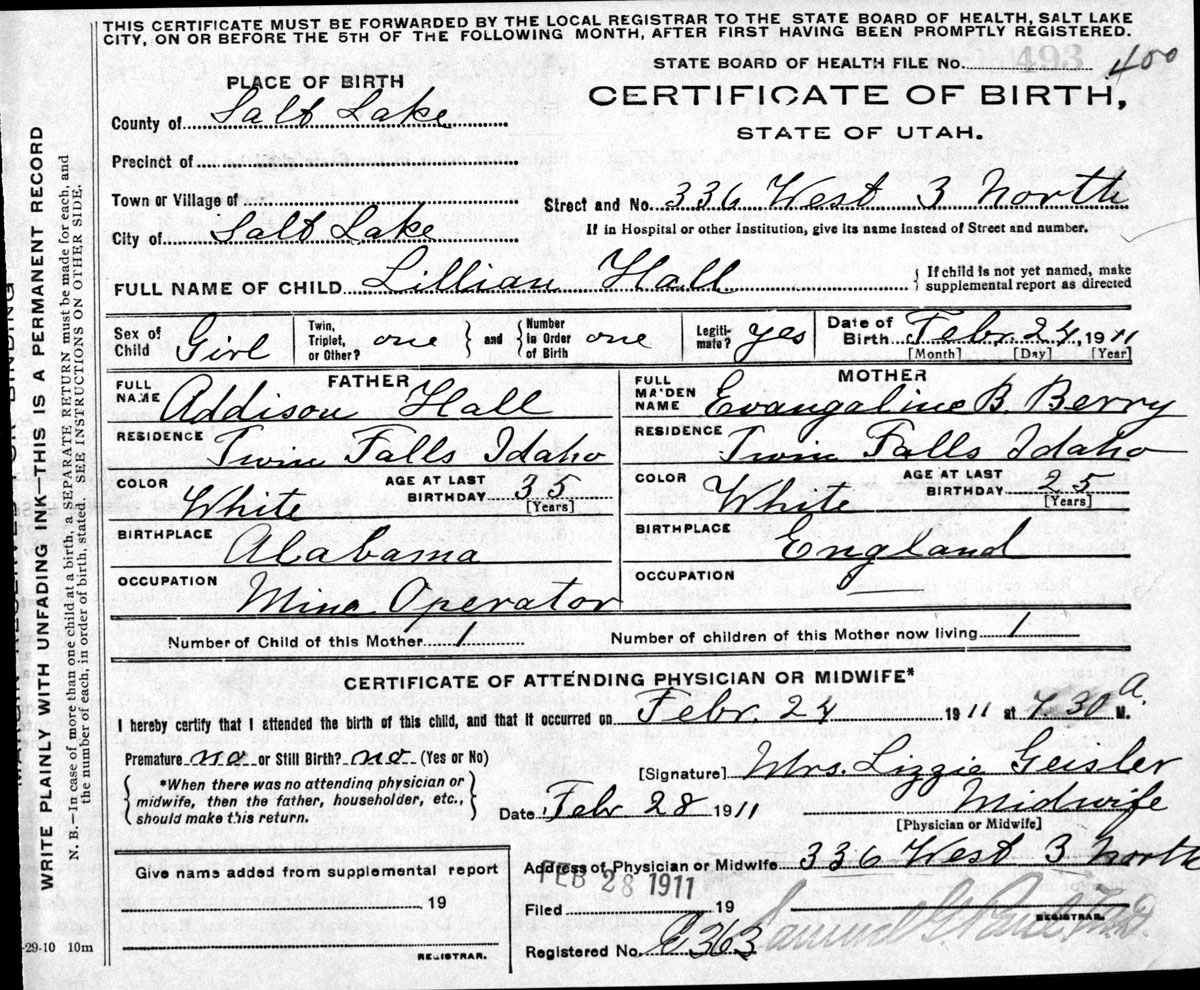 THIS CERTIFICATE MUST BE FORWARDED BY THE LOCAL REGISTRAR TO THE STATE BOARD OF HEALTH, SALT LAKE
CITY, ON OR BEFORE THE 5TH OF THE FOLLOWING MONTH, AFTER FIRST HAVING BEEN PROMPTLY REGISTERED.
STATE BOARD OF HEALTH FILE No. 493 400
PLACE OF BIRTH
CERTIFICATE OF BIRTH,
STATE OF UTAH.
County of Salt Lake
Precinct of
Town or Village of
Street and No. 336 West 3 North
City of Salt Lake
If in Hospital or other Institution, give its name instead of Street and number.
FULL NAME OF CHILD Lillian Hall
If child is not yet named, make
supplemental report as directed
Sex of Child Girl
Twin, Triplet, or Other? one
and
Number in Order of Birth one
Legitimate? yes
Date of Birth Febr. 24, 1911
[Month] [Day] [Year]
FATHER
FULL NAME Addison Hall
RESIDENCE Twin Falls Idaho
COLOR White
AGE AT LAST BIRTHDAY 35
[Years]
BIRTHPLACE Alabama
OCCUPATION Mine Operator
MOTHER
FULL MAIDEN NAME Evangaline B. Berry
RESIDENCE Twin Falls Idaho
COLOR White
AGE AT LAST BIRTHDAY 25
[Years]
BIRTHPLACE England
OCCUPATION
Number of Child of this Mother 1
Number of children of this Mother now living 1
CERTIFICATE OF ATTENDING PHYSICIAN OR MIDWIFE*
I hereby certify that I attended the birth of this child, and that it occurred on Febr. 24 1911 at 7.30 a. M.
Premature no or Still Birth? no (Yes or No)
*When there was no attending physician or
midwife, then the father, householder, etc.,
should make this return.
[Signature] Mrs. Lizzie Geisler
Date Febr 28 1911
Midwife
[Physician or Midwife]
Address of Physician or Midwife 336 West 3 North
Give name added from supplemental report
19
REGISTRAR.
FEB 28 1911
Filed 19
Samuel G. Paul M.D.
REGISTRAR.
Registered No. E363
WRITE PLAINLY WITH UNFADING INK—THIS IS A PERMANENT RECORD
N. B.—In case of more than one child at a birth, a SEPARATE RETURN must be made for each, and
the number of each, in order of birth, stated. SEE INSTRUCTIONS ON OTHER SIDE.
-29-10 10m